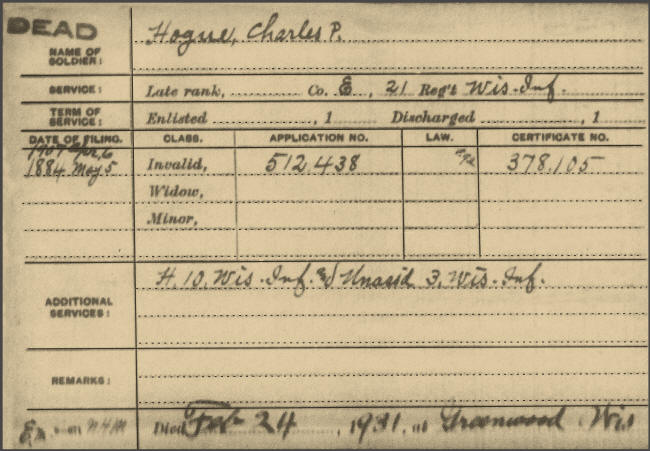 DEAD
NAME OF SOLDIER: Hogue, Charles P.
SERVICE: Late rank, Co. E, 21 Reg't Wis. Inf.
TERM OF SERVICE: Enlisted , 1 Discharged , 1
DATE OF FILING. CLASS. APPLICATION NO. LAW. CERTIFICATE NO.
1884 May 5 Invalid, 512,438 378,105
Widow,
Minor,
ADDITIONAL SERVICES: H. 10, Wis. Inf. & Unasid 3, Wis. Inf.
REMARKS:
Died Feb 24, 1931, at Greenwood Wis